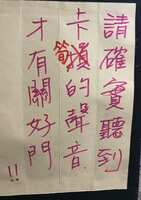 請確實聽到
卡筍的聲音
才有關好門!!